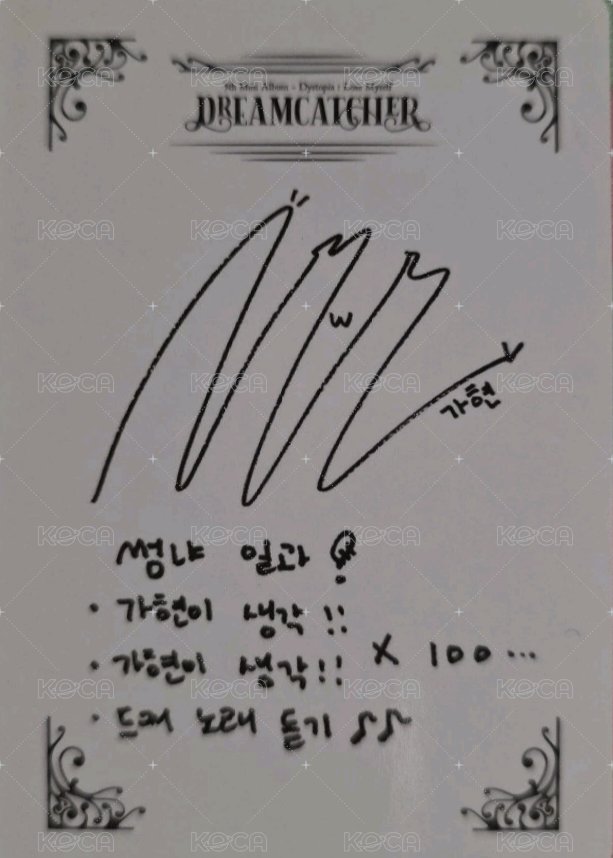 5th Mini Album - Dystopia : Lose Myself
DREAMCATCHER
w
가현
썸냐 일과 !
• 가현이 생각 !!
• 가현이 생각 !! X 100 ...
• 드캐 노래 듣기 ♪♪
KOCA